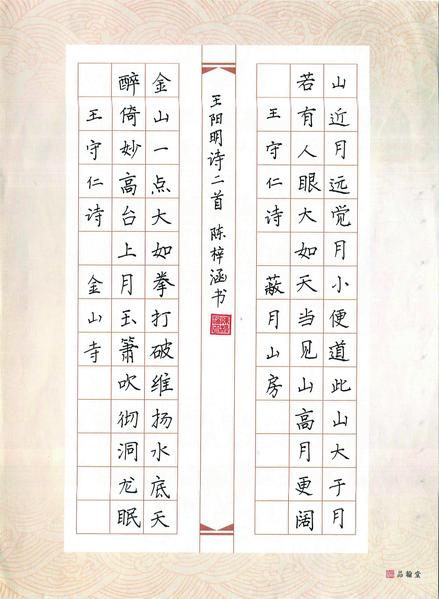 山近月远觉月小便道此山大于月
若有人眼大如天当见山高月更阔
王守仁诗 蔽月山房
王阳明诗二首 陈梓涵书
金山一点大如拳打破维扬水底天
醉倚妙高台上月玉箫吹彻洞龙眠
王守仁诗 金山寺
品翰堂